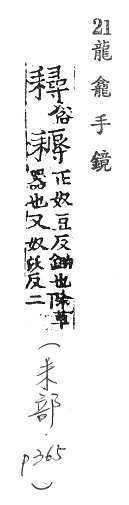 21 龍龕手鏡
俗
耨
正奴豆反鋤也除草
器也又奴沃反二
(耒部. p365)